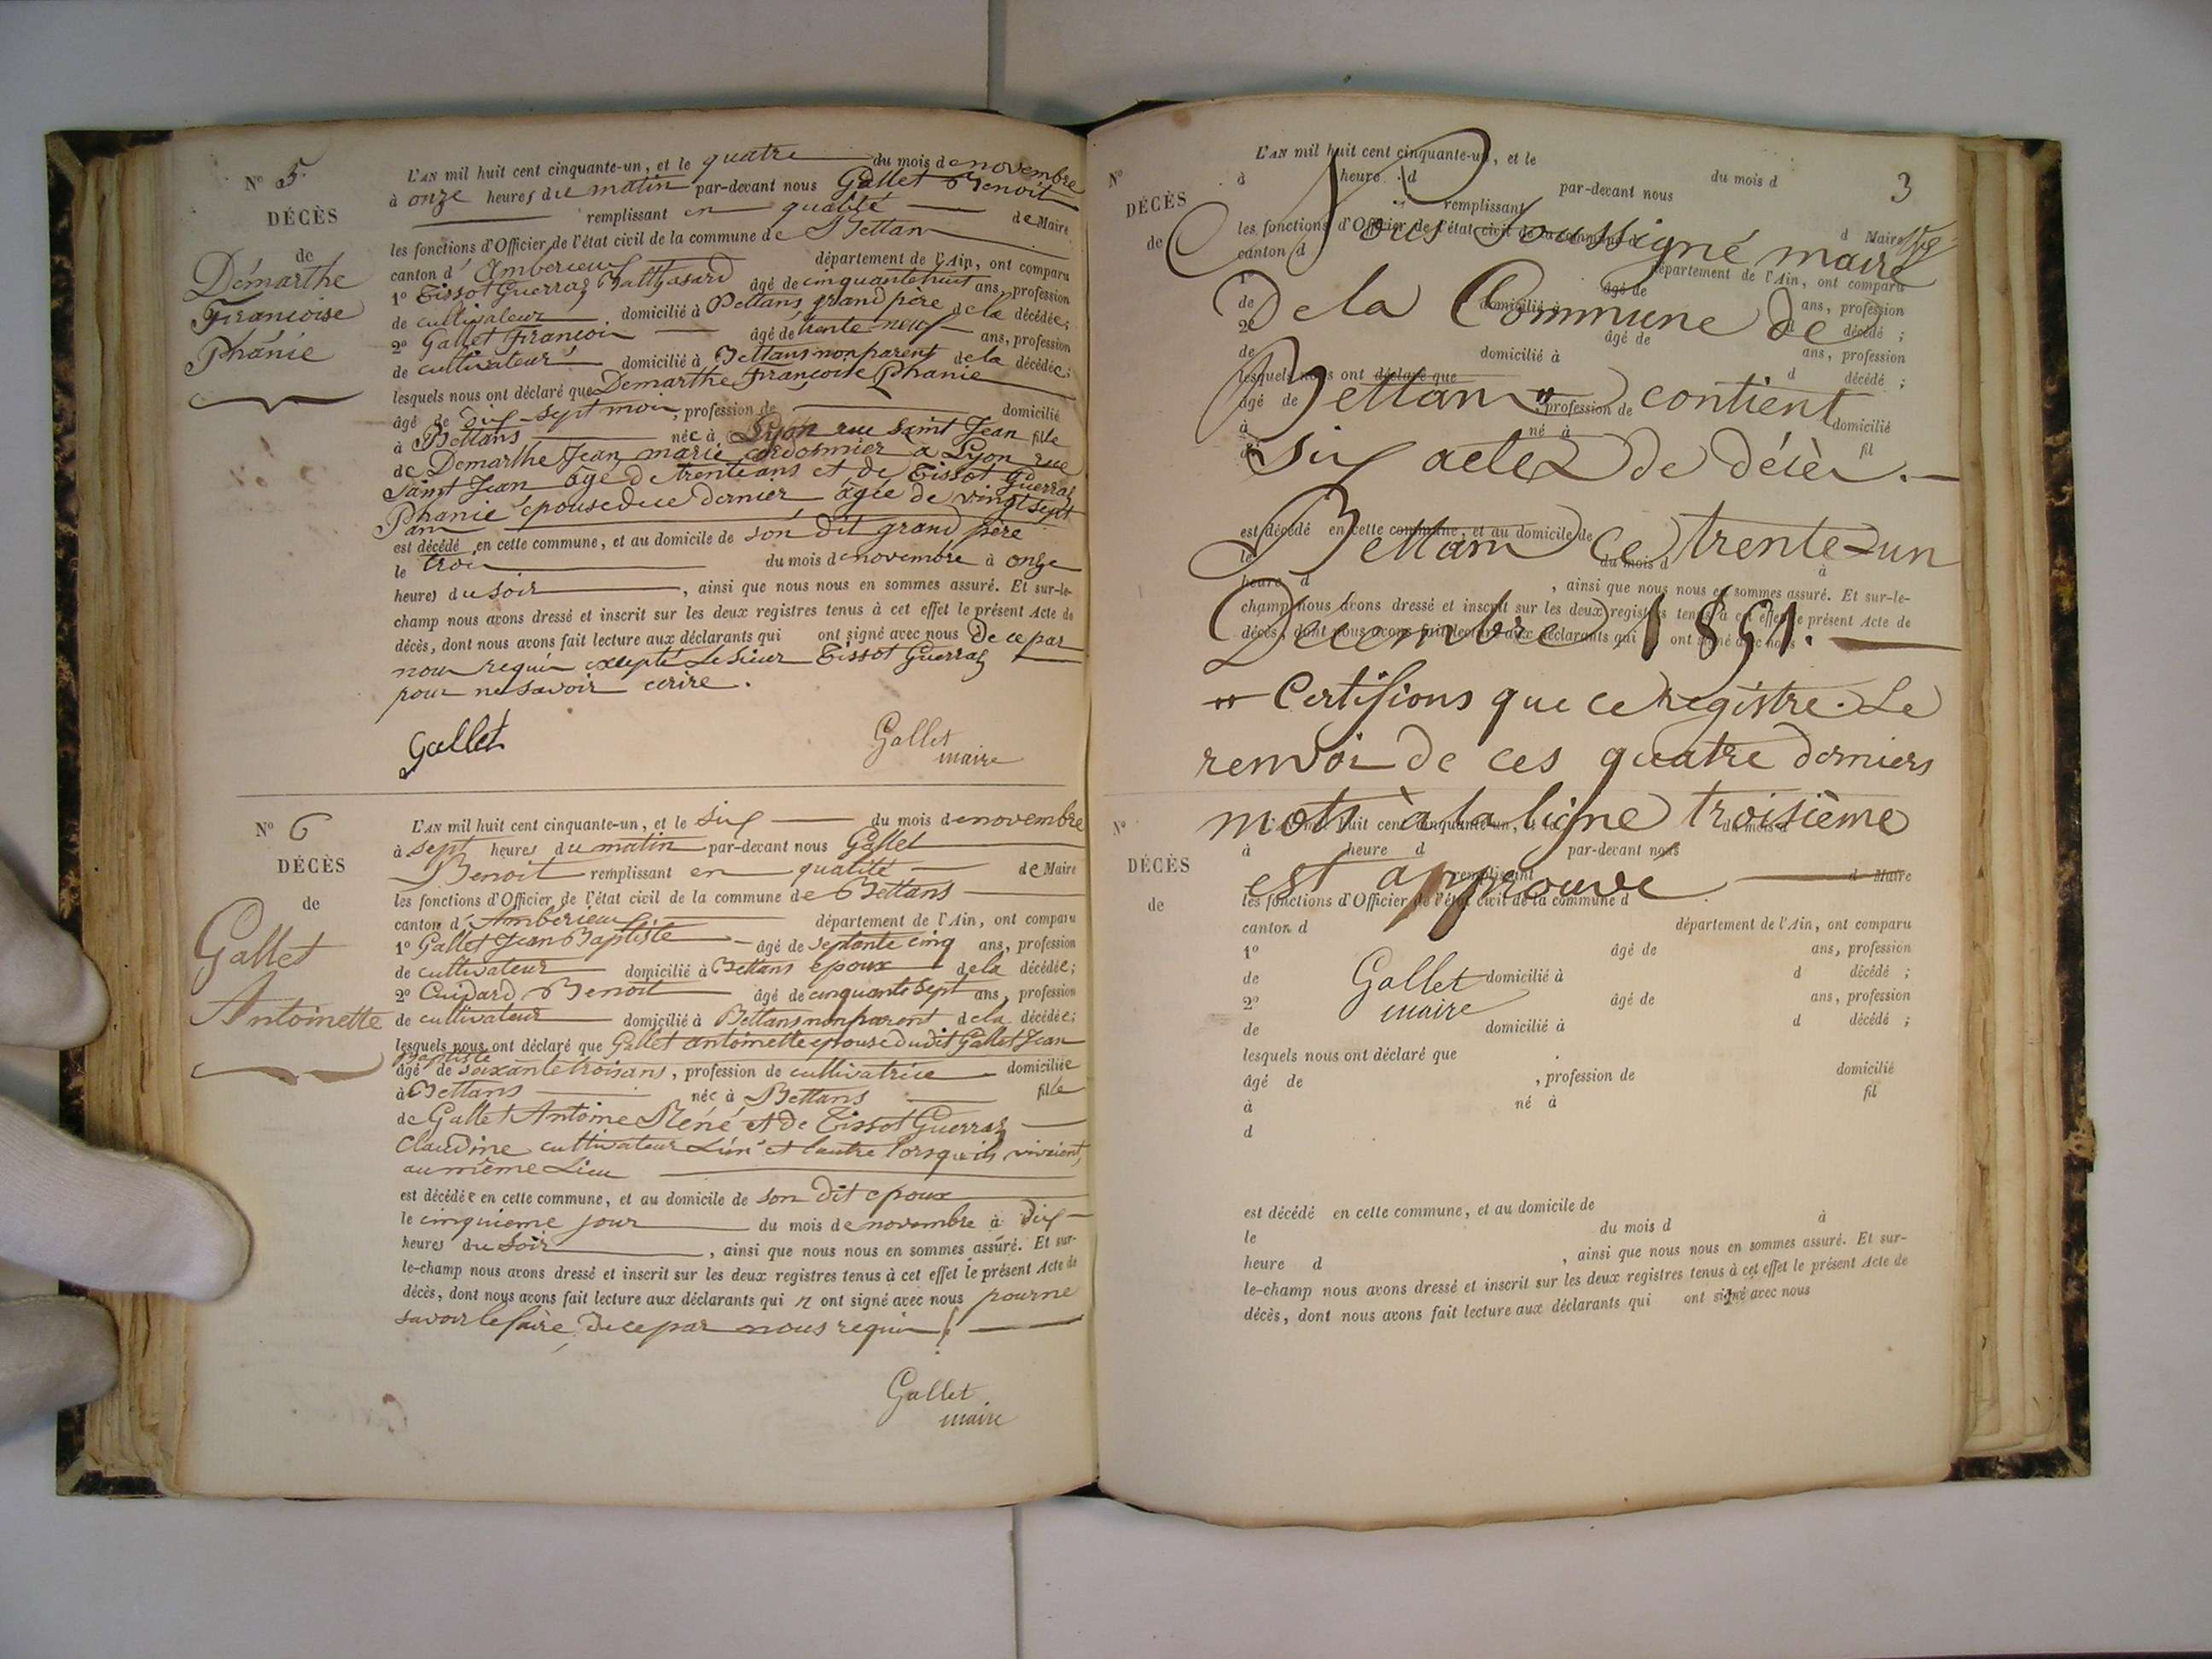 N° 5.
DÉCÈS
de
Démarthe
Francoise
Phánie
L'AN mil huit cent cinquante-un, et le quatre du mois de novembre
à onze heures du matin par-devant nous Gallet Benoit
remplissant en qualité de Maire
les fonctions d'Officier de l'état civil de la commune de Bettan
canton d'Amberieux département de l'Ain, ont comparu
1° Tissot Guerraz Balthasard âgé de cinquante huit ans, profession
de cultivateur domicilié à Bettans grand père de la décédée;
2° Gallet François âgé de trente neuf ans, profession
de cultivateur domicilié à Bettans non parent de la décédée;
lesquels nous ont déclaré que Demarthe Francoise Phanie
âgé de dix-sept mois, profession de domicilié
à Bettans née à Lyon rue Saint Jean fille
de Demarthe Jean marie cordonnier à Lyon rue
Saint Jean âgé de trente ans et de Tissot Guerraz
Phanie épouse de ce dernier âgée de vingt sept
ans
est décédé en cette commune, et au domicile de son dit grand père
le trois du mois de novembre à onze
heures du soir, ainsi que nous nous en sommes assuré. Et sur-le-
champ nous avons dressé et inscrit sur les deux registres tenus à cet effet le présent Acte de
décès, dont nous avons fait lecture aux déclarants qui ont signé avec nous de ce par
nous requis excepté le sieur Tissot Guerraz
pour ne savoir écrire.
Gallet Gallet
maire
N° 6
DÉCÈS
de
Gallet
Antoinette
L'AN mil huit cent cinquante-un, et le six du mois de novembre
à sept heures du matin par-devant nous Gallet
Benoit remplissant en qualité de Maire
les fonctions d'Officier de l'état civil de la commune de Bettans
canton d'Amberieux département de l'Ain, ont comparu
1° Gallet Jean Baptiste âgé de septante cinq ans, profession
de cultivateur domicilié à Bettans époux de la décédée;
2° Cuidard Benoit âgé de cinquante sept ans, profession
de cultivateur domicilié à Bettans non parent de la décédée;
lesquels nous ont déclaré que Gallet antoinette epouse du dit Gallet Jean
Baptiste
âgé de soixante trois ans, profession de cultivatrice domiciliée
à Bettans née à Bettans fille
de Gallet Antoine Réné et de Tissot Guerraz
Claudine cultivateur l'un et l'autre lorsqu'ils vivaient,
au même lieu
est décédée en cette commune, et au domicile de son dit epoux
le cinquieme jour du mois de novembre à dix
heures du soir, ainsi que nous nous en sommes assuré. Et sur-
le-champ nous avons dressé et inscrit sur les deux registres tenus à cet effet le présent Acte de
décès, dont nous avons fait lecture aux déclarants qui n ont signé avec nous pour ne
savoir le faire, de ce par nous requis.
Gallet
maire
3
N°
DÉCÈS
de
L'AN mil huit cent cinquante-un, et le
à heure d du mois d
par-devant nous
remplissant
les fonctions d'Officier de l'état civil de la commune d d Maire
canton d département de l'Ain, ont comparu
1° âgé de ans, profession
de domicilié à d décédé ;
2° âgé de ans, profession
de domicilié à d décédé ;
lesquels nous ont déclaré que
âgé de , profession de domicilié
à né à fil
est décédé en cette commune, et au domicile de
le du mois d à
heure d , ainsi que nous nous en sommes assuré. Et sur-le-
champ nous avons dressé et inscrit sur les deux registres tenus à cet effet le présent Acte de
décès, dont nous avons fait lecture aux déclarants qui ont signé avec nous
Nous Soussigné maire
De la Commune de
Bettan contient
six actes de décès.
Bettan ce trente-un
Decembre 1851.
Certifions que ce registre. Le
renvoi de ces quatre derniers
mots à la ligne troisième
est approuvé
Gallet
maire
N°
DÉCÈS
de
L'AN mil huit cent cinquante-un, et le du mois d
à heure d par-devant nous
remplissant d Maire
les fonctions d'Officier de l'état civil de la commune d
canton d département de l'Ain, ont comparu
1° âgé de ans, profession
de domicilié à d décédé ;
2° âgé de ans, profession
de domicilié à d décédé ;
lesquels nous ont déclaré que
âgé de , profession de domicilié
à né à fil
d
est décédé en cette commune, et au domicile de
le du mois d à
heure d , ainsi que nous nous en sommes assuré. Et sur-
le-champ nous avons dressé et inscrit sur les deux registres tenus à cet effet le présent Acte de
décès, dont nous avons fait lecture aux déclarants qui ont signé avec nous